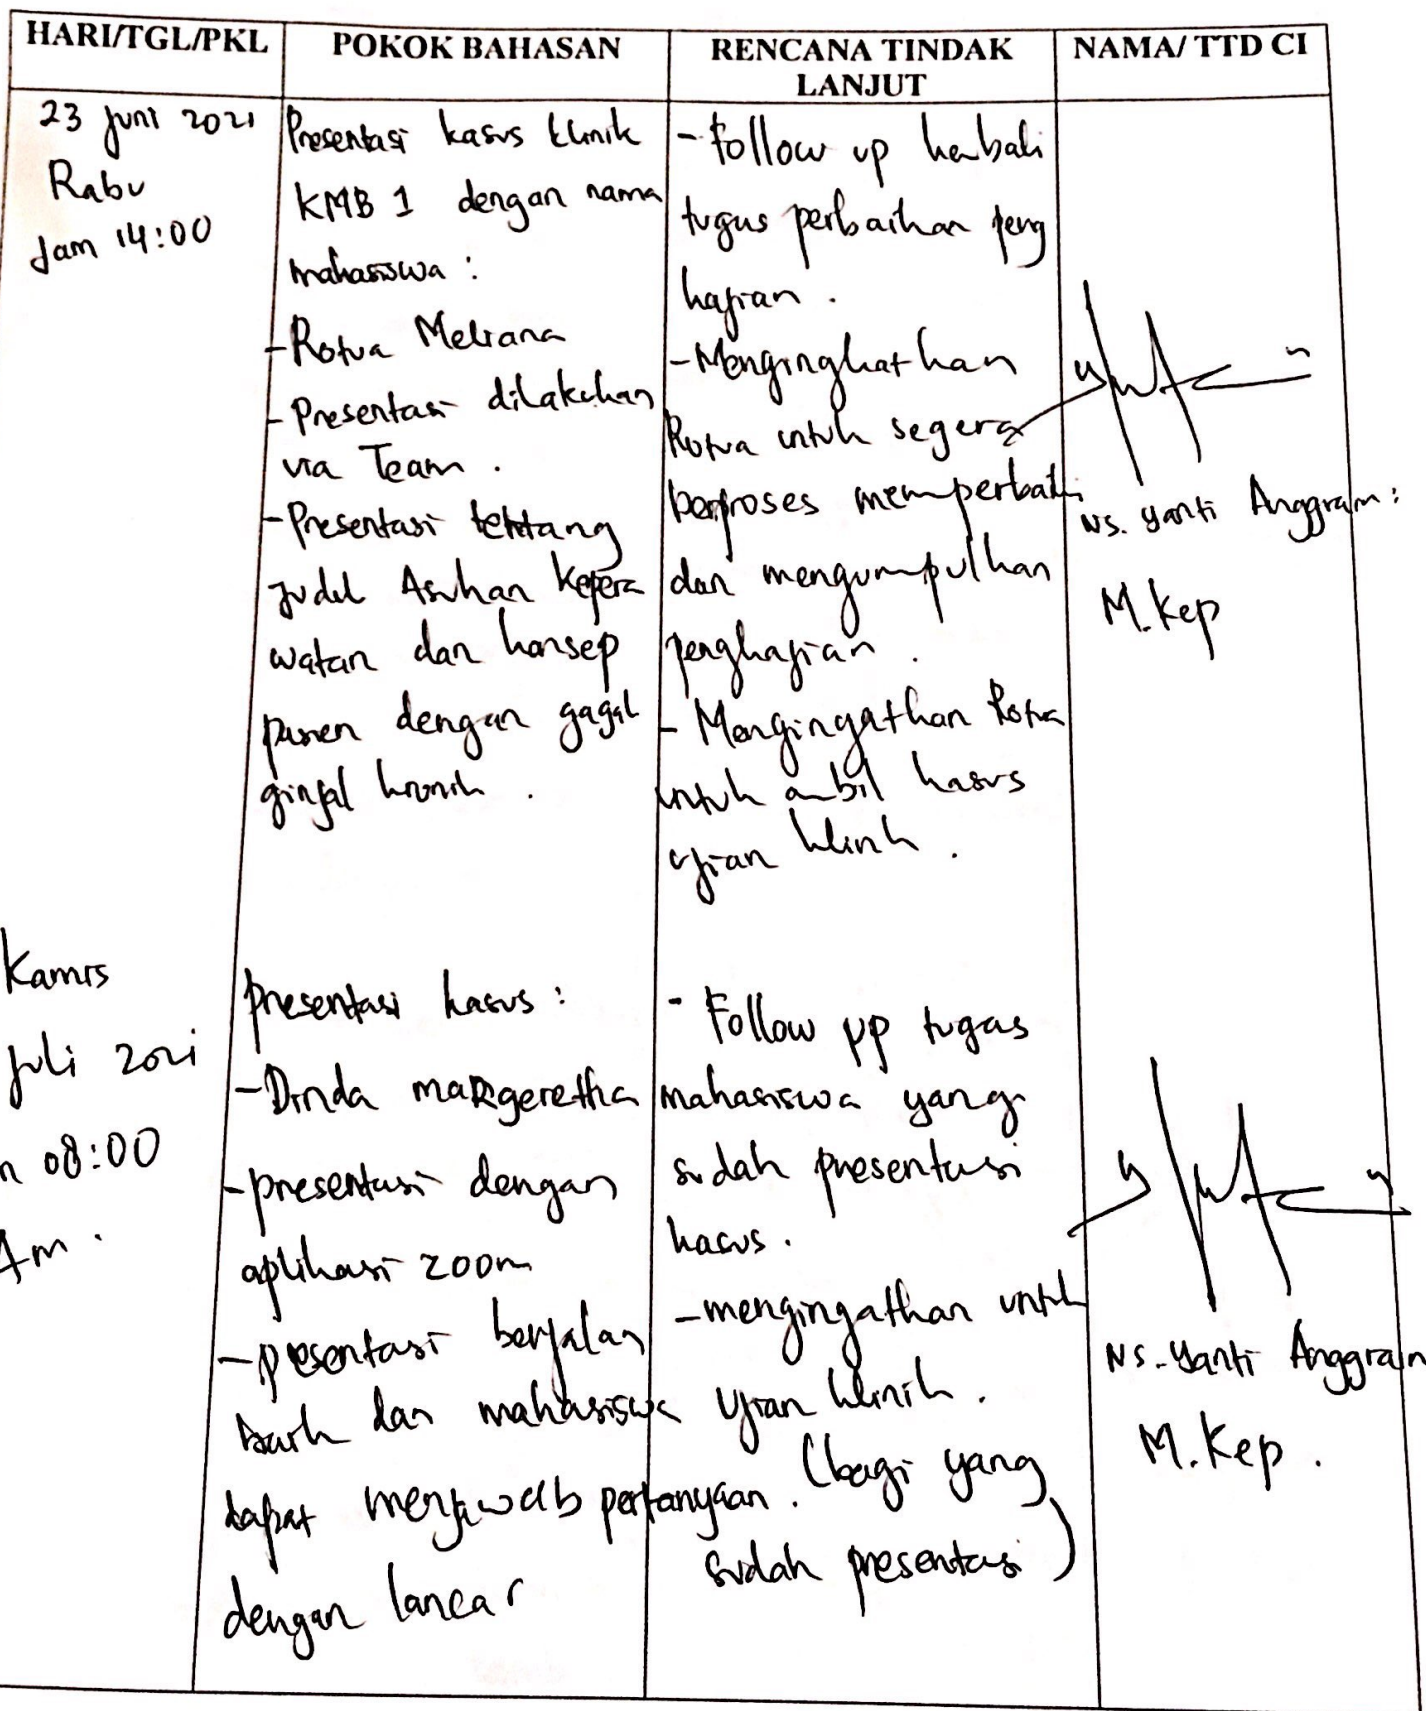 HARI/TGL/PKL
POKOK BAHASAN
RENCANA TINDAK
LANJUT
NAMA/ TTD CI
23 Juni 2021
Rabu
Jam 14:00
Presentasi kasus klinik
KMB 1 dengan nama
mahasiswa :
- Rotua Meliana
- Presentasi dilakukan
via Team .
- Presentasi tentang
judul Asuhan Kepera
watan dan konsep
pasien dengan gagal
ginjal kronik .
- Follow up kembali
tugas perbaikan peng
kajian .
- Mengingkatkan
Rotua untuk segera
berproses memperbaiki
dan mengumpulkan
pengkajian .
- Mengingatkan Rotua
untuk ambil kasus
ujian klinik .
Ns. Yanti Anggraini
M.Kep
Kamis
Juli 2021
08:00
Am .
presentasi kasus :
- Dinda maRgeretha
- presentasi dengan
aplikasi zoom
- presentasi berjalan
baik dan mahasiswa
dapat menjawab pertanyaan .
dengan lancar
- Follow up tugas
mahasiswa yang
sudah presentasi
kasus .
- mengingatkan untuk
Ujian klinik .
(bagi yang
sudah presentasi)
Ns. Yanti Anggrain
M.Kep .